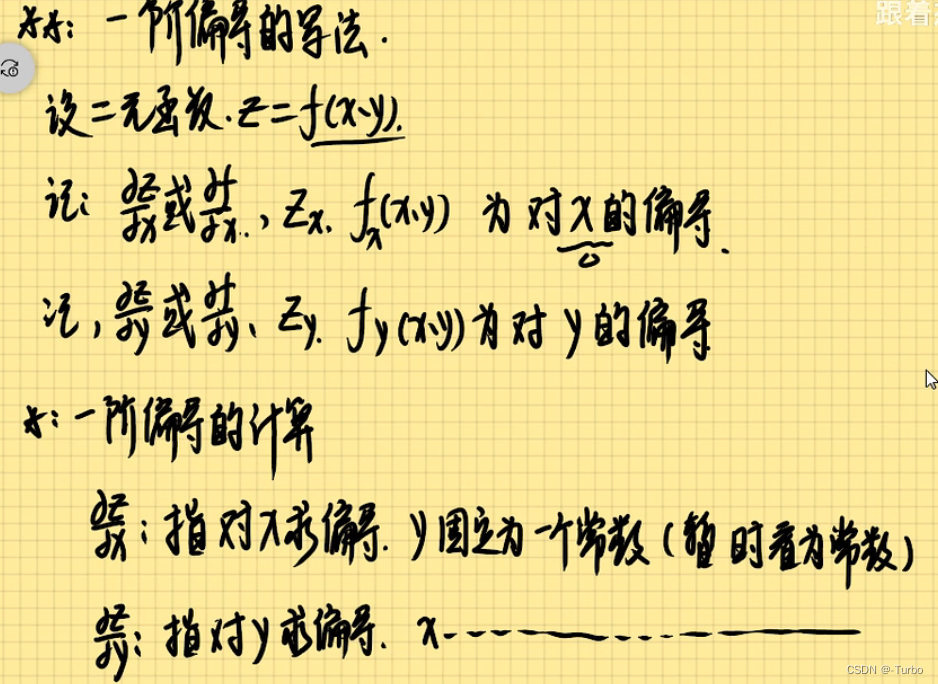 跟着
☆☆: 一阶偏导的写法.
设二元函数.z=f(x、y).
记: ∂z/∂x或∂f/∂x., Zx. fx(x、y) 为对x的偏导.
记, ∂z/∂y或∂f/∂y、Zy. fy(x、y)为对y的偏导
☆:一阶偏导的计算
∂z/∂x: 指对x求偏导. y固定为一个常数(暂时看为常数)
∂z/∂y: 指对y求偏导. x
CSDN @-Turbo